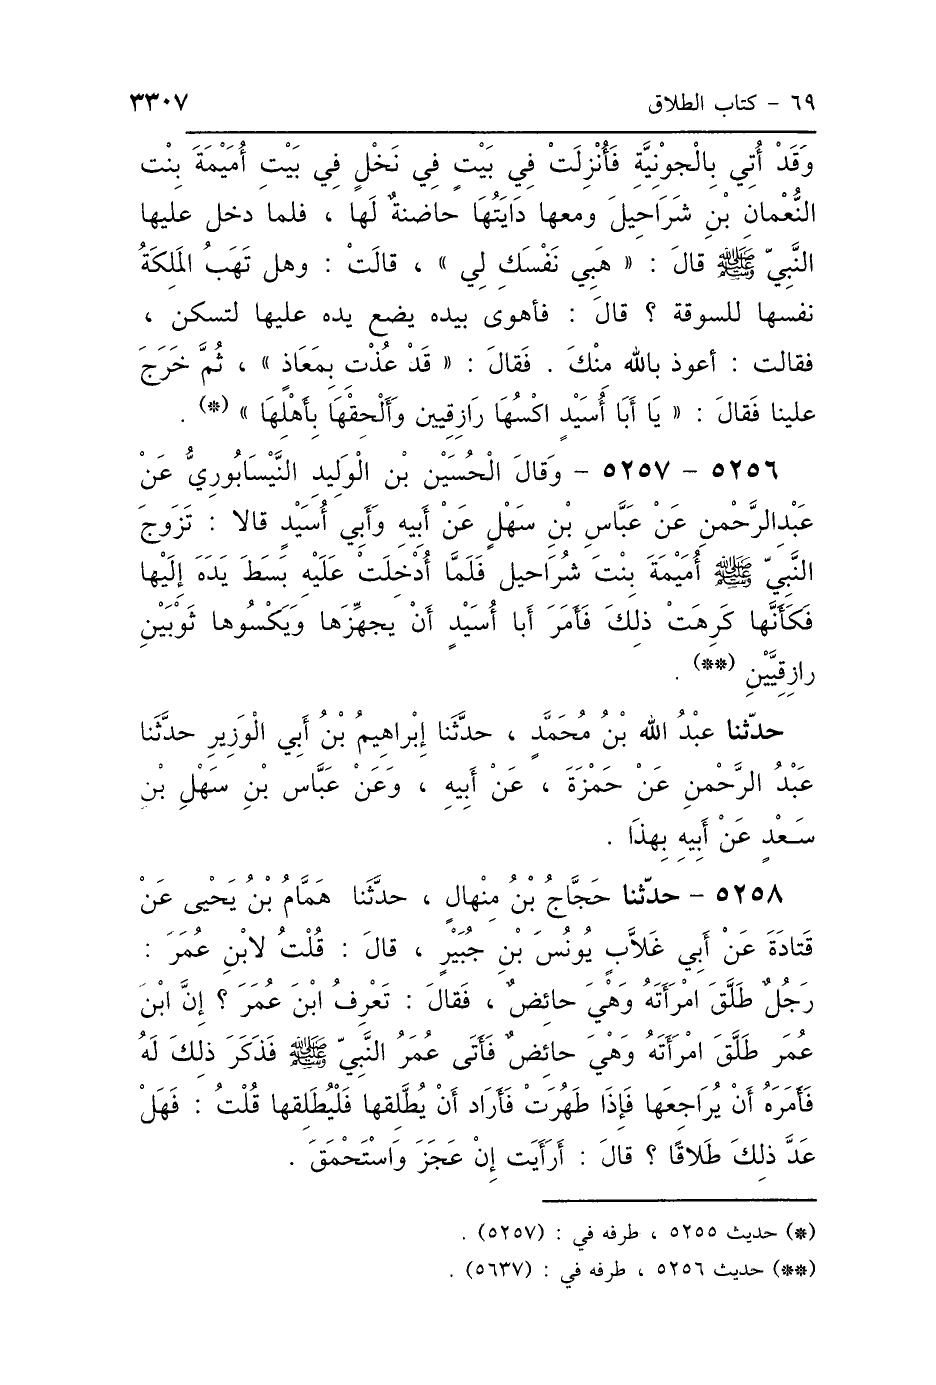 ٦٩ - كتاب الطلاق ٣٣٠٧
وَقَدْ أُتي بِالْجونْيَّةِ فَأُنْزِلَتْ في بَيْتٍ في نَخْلٍ في بَيْتِ أُمَيْمَةَ بِنْت
النُّعْمان بْنِ شَرَاحيلَ ومعها دَايَتُهَا حاضنةٌ لَها ، فلما دخل عليها
النَّبِيّ ﷺ قالَ : « هَبي نَفْسَكِ لي » ، قالَتْ : وهل تَهَبُ المَلِكَةُ
نفسها للسوقة ؟ قالَ : فأهوى بيده يضع يده عليها لتسكن ،
فقالت : أعوذ بالله مِنْكَ . فَقالَ : « قَدْ عُذْتِ بِمَعَاذٍ » ، ثُمَّ خَرَجَ
علينا فَقالَ : « يَا أَبَا أُسَيْدٍ اكْسُهَا رَازِقِيين وَأَلْحِقْهَا بِأَهْلِهَا » (*) .
٥٢٥٦ - ٥٢٥٧ - وَقالَ الْحُسَيْن بْن الْوَلِيد النَّيْسَابُوريُّ عَنْ
عَبْدِالرَّحْمنِ عَنْ عَبَّاس بْنِ سَهْلٍ عَنْ أَبيهِ وَأَبي أُسَيْدٍ قالا : تَزَوجَ
النَّبِيّ ﷺ أُمَيْمَةَ بِنْتَ شُرَاحيل فَلَمَّا أُدْخِلَتْ عَلَيْهِ بَسَطَ يَدَهَ إِلَيْها
فَكَأَنَّها كَرِهَتْ ذلِكَ فَأَمَرَ أبا أُسَيْدٍ أَنْ يجهِّزَها وَيَكْسُوها ثَوْبَيْنِ
رازِقِيَّيْنِ (**) .
حدّثنا عبْدُ الله بْنُ مُحَمَّدٍ ، حدَّثَنا إِبْراهيمُ بْنُ أَبي الْوَزيرِ حدَّثَنا
عَبْدُ الرَّحْمنِ عَنْ حَمْزَةَ ، عَنْ أَبيهِ ، وَعَنْ عَبَّاس بْنِ سَهْلِ بْنِ
سَعْدٍ عَنْ أَبيهِ بِهذَا .
٥٢٥٨ - حدّثنا حَجَّاجُ بْنُ مِنْهالٍ ، حدَّثَنا هَمَّامُ بْنُ يَحْيى عَنْ
قَتادَةَ عَنْ أَبي غَلاَّبٍ يُونُسَ بْنِ جُبَيْرٍ ، قالَ : قُلْتُ لابْنِ عُمَرَ :
رَجُلٌ طَلَّقَ امْرَأَتَهُ وَهْيَ حائِضٌ ، فَقالَ : تَعْرِفُ ابْنَ عُمَرَ ؟ إِنَّ ابْنَ
عُمَر طَلَّقَ امْرَأَتَهُ وَهْيَ حائِضٌ فَأَتَى عُمَرُ النَّبِيّ ﷺ فَذَكَرَ ذلِكَ لَهُ
فَأَمَرَهُ أَنْ يُرَاجِعَها فَإِذَا طَهُرَتْ فَأَرَاد أَنْ يُطَلِّقها فَلْيُطَلِقها قُلْتُ : فَهَلْ
عَدَّ ذلِكَ طَلاَقًا ؟ قالَ : أَرَأَيَت إِنْ عَجَزَ وَاسْتَحْمَقَ .
(*) حديث ٥٢٥٥ ، طرفه في : (٥٢٥٧) .
(**) حديث ٥٢٥٦ ، طرفه في : (٥٦٣٧) .